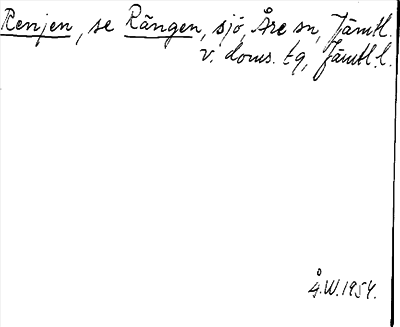 Renjen, se Rängen, sjö, Åre sn, Jämtl.
v. doms. tg, Jämtl. l.
Å.W. 1954.